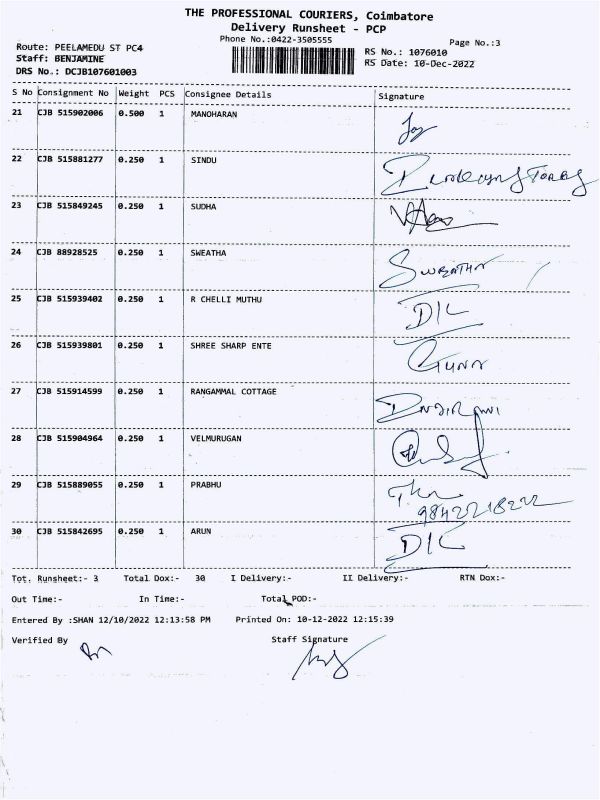 THE PROFESSIONAL COURIERS, Coimbatore
Delivery Runsheet - PCP
Phone No.:0422-3505555
Page No.:3
Route: PEELAMEDU ST PC4
Staff: BENJAMINE
DRS No.: DCJB107601003
RS No.: 1076010
RS Date: 10-Dec-2022
S No Consignment No Weight PCS Consignee Details Signature
21 CJB 515902006 0.500 1 MANOHARAN
22 CJB 515881277 0.250 1 SINDU
23 CJB 515849245 0.250 1 SUDHA
24 CJB 88928525 0.250 1 SWEATHA
25 CJB 515939402 0.250 1 R CHELLI MUTHU D/L
26 CJB 515939801 0.250 1 SHREE SHARP ENTE
27 CJB 515914599 0.250 1 RANGAMMAL COTTAGE
28 CJB 515904964 0.250 1 VELMURUGAN
29 CJB 515889055 0.250 1 PRABHU
9842218222
30 CJB 515842695 0.250 1 ARUN D/L
Tot. Runsheet:- 3 Total Dox:- 30 I Delivery:- II Delivery:- RTN Dox:-
Out Time:- In Time:- Total POD:-
Entered By :SHAN 12/10/2022 12:13:58 PM Printed On: 10-12-2022 12:15:39
Verified By Staff Signature